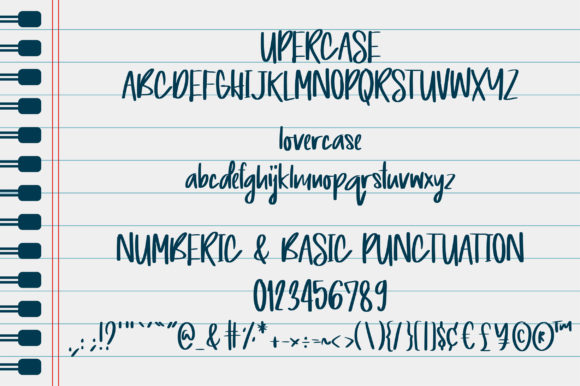 UPERCASE
ABCDEFGHIJKLMNOPQRSTUVWXYZ
lovercase
abcdefghijklmnopqrstuvwxyz
NUMBERIC & BASIC PUNCTUATION
0123456789
.,:;!?'"`˝@_&#%*+-×÷=~<>(\){/}[|]$¢€£¥©®™